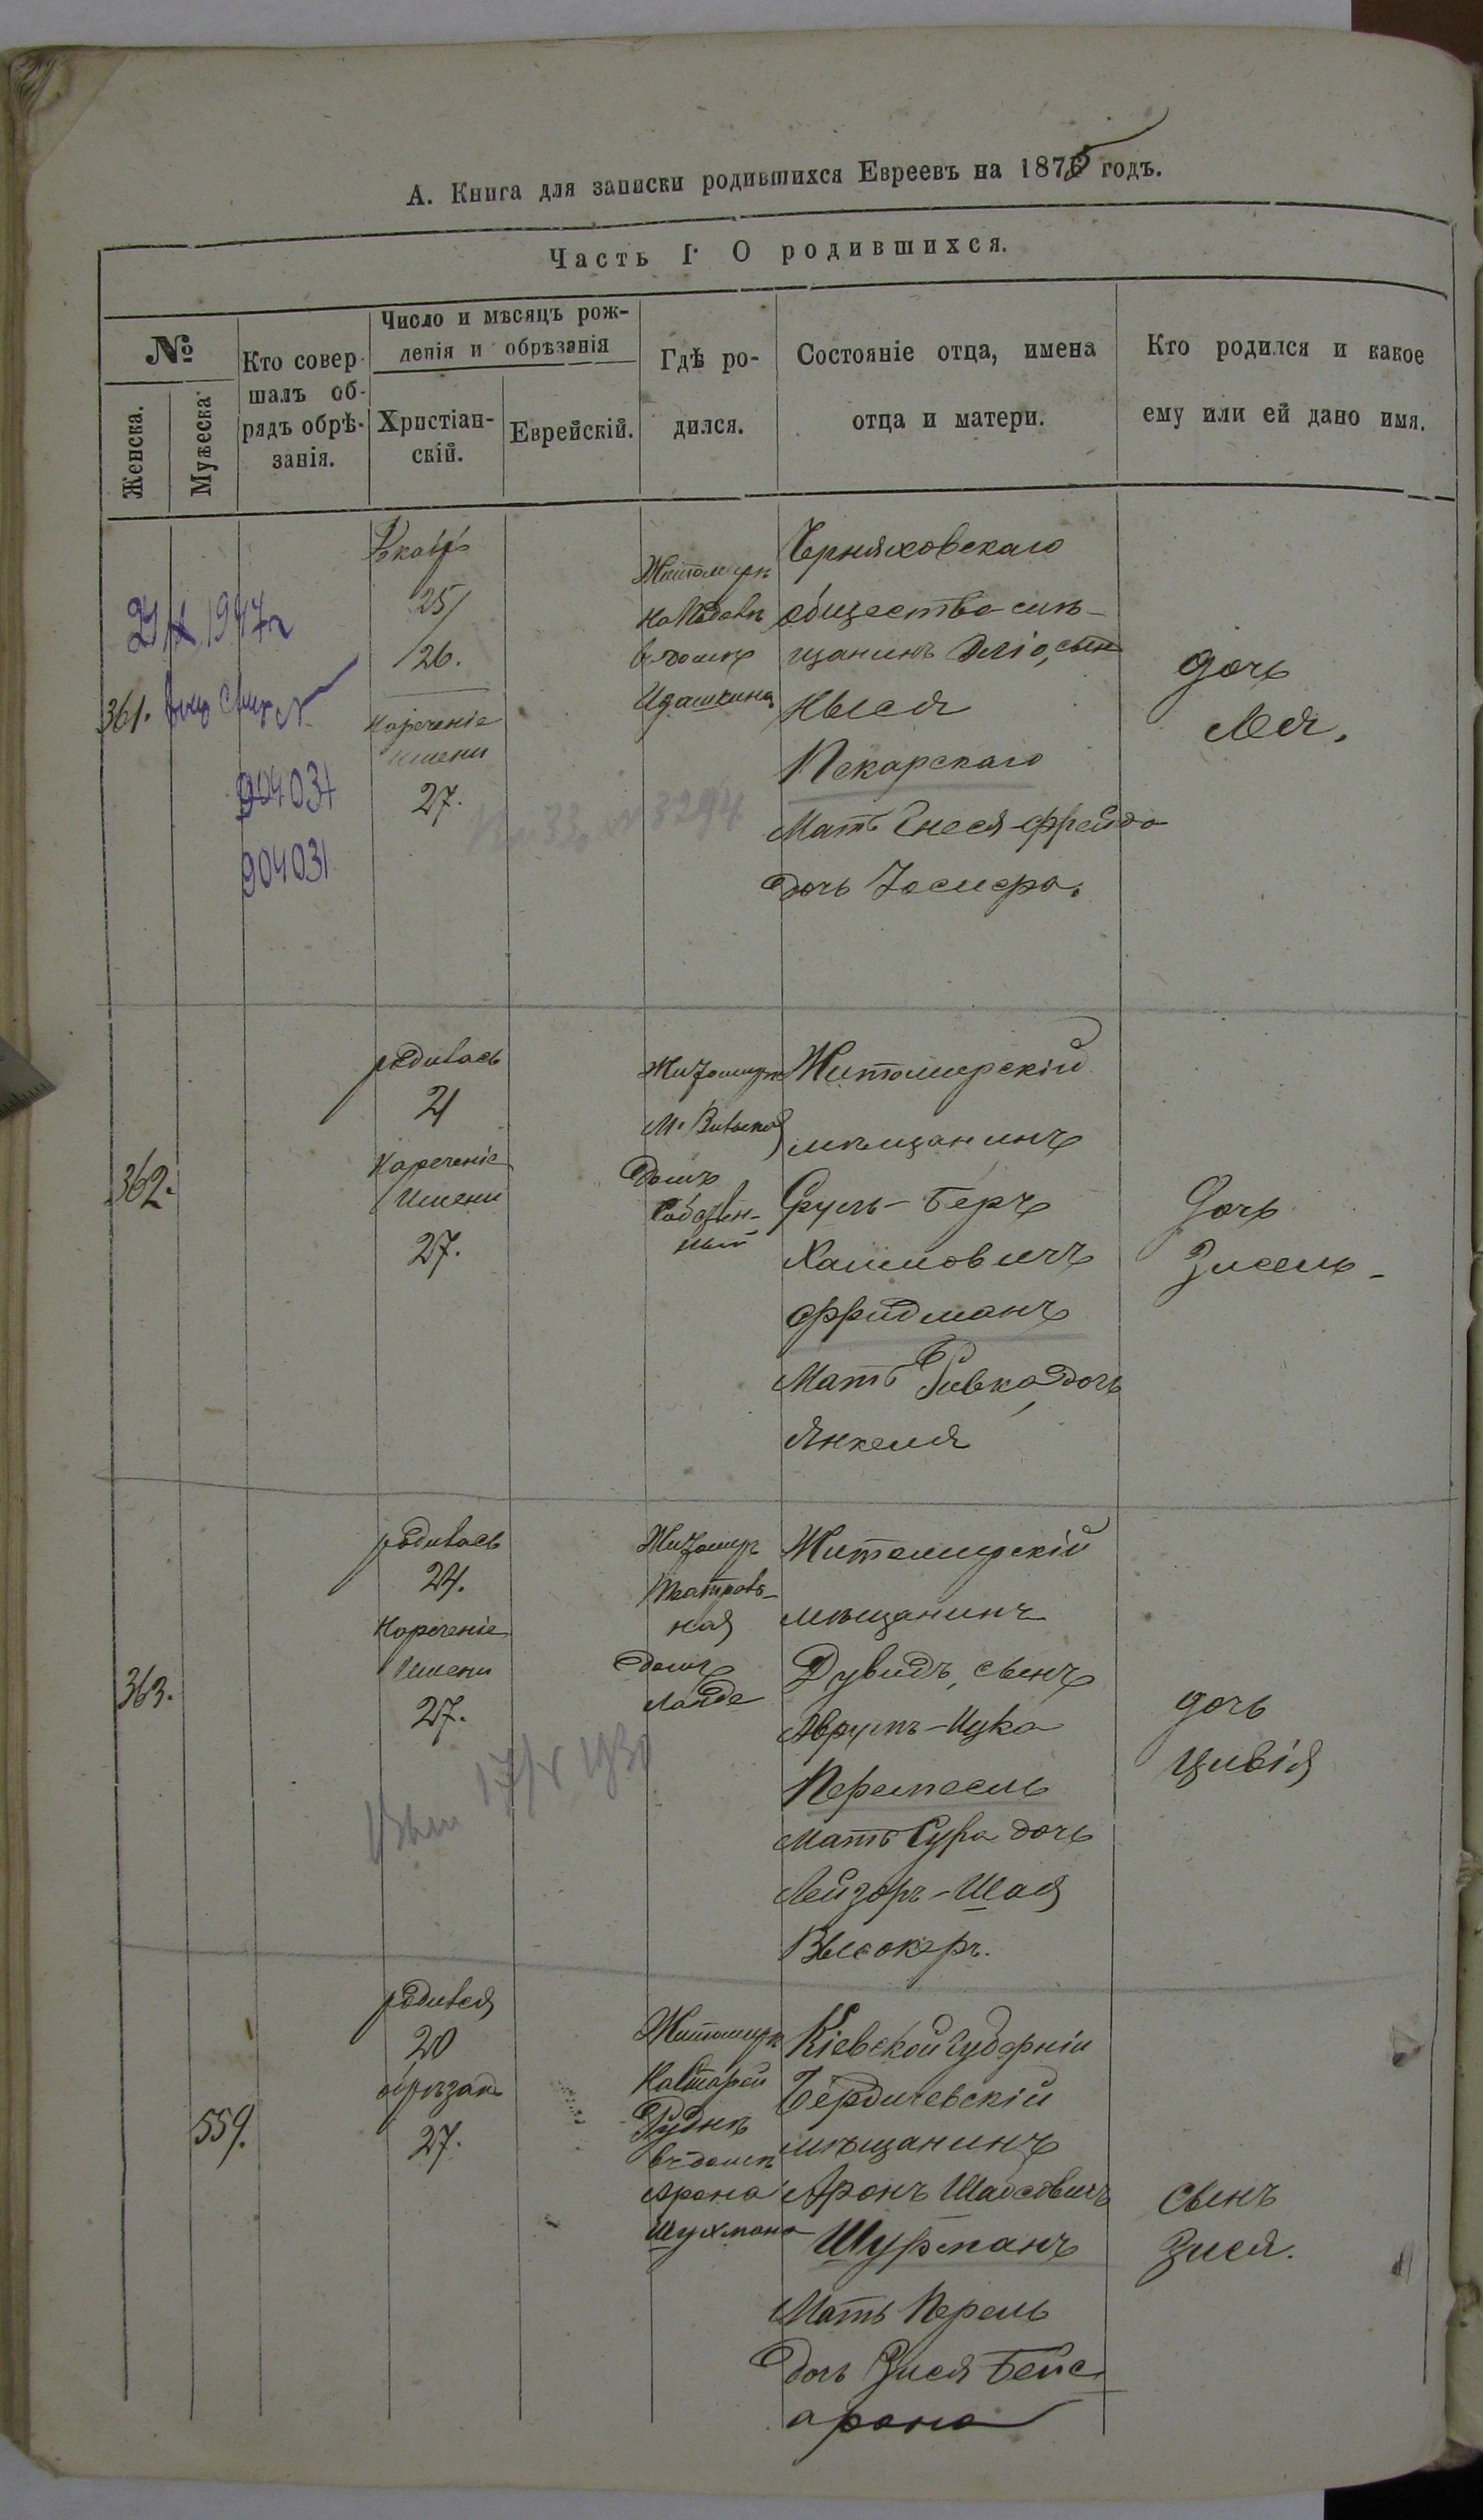 А. Книга для записки родившихся Евреевъ на 1875 годъ.
Часть I. О родившихся.
№
Женска.
Мужеска
Кто совер-
шалъ об-
рядъ обрѣ-
занія.
Число и мѣсяцъ рож-
денія и обрѣзанія
Христіан-
скій.
Еврейскій.
Гдѣ ро-
дился.
Состояніе отца, имена
отца и матери.
Кто родился и какое
ему или ей дано имя.
361.
904031
904031
25/
/26.
Нареченіе
имени
27.
Житомиръ
въ домѣ
Идашкина
Черняховскаго
общества мѣ-
щанинъ Эліо, сынъ
Нысея
Пекарскаго
Мать Енеся-Фрейда
дочь Іосифа.
дочь
Лея.
362.
родилась
21
Нареченіе
Имени
27.
Житомиръ
М. Вильской
домъ
собствен-
ный
Житомирскій
мѣщанинъ
Сруль-Беръ
Хаимовичъ
Фридманъ
Мать Ривка, дочь
Янкеля
Дочь
Зисель-
363.
родилась
24.
Нареченіе
Имени
27.
Житомиръ
Театраль-
ная
домъ
Ланде
Житомирскій
мѣщанинъ
Дувидъ, сынъ
Аврумъ-Ицка
Перепель
Мать Сура дочь
Лейзоръ-Шая
Высокеръ.
дочь
Цивія
559.
родился
20
обрѣзанъ
27.
Житомиръ
На Старой
Руднѣ
въ домѣ
Арона
Шухмана
Кіевской Губерніи
Бердичевскій
мѣщанинъ
Аронъ Шабсовичъ
Шурманъ
Мать Перель
дочь Зися Бейс
арона
Сынъ
Зися.